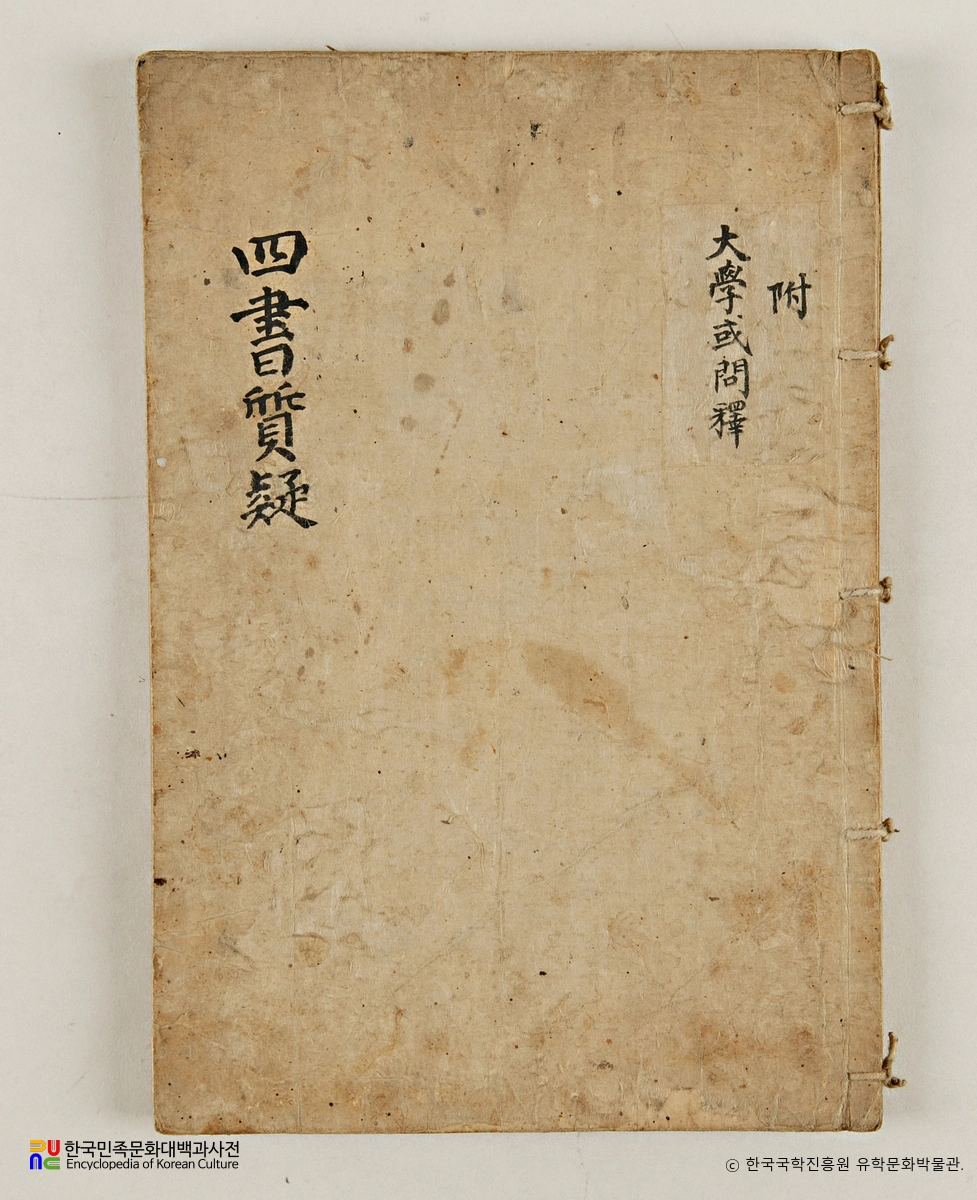 附
大學或問釋
四書質疑
한국민족문화대백과사전
Encyclopedia of Korean Culture
© 한국국학진흥원 유학문화박물관.